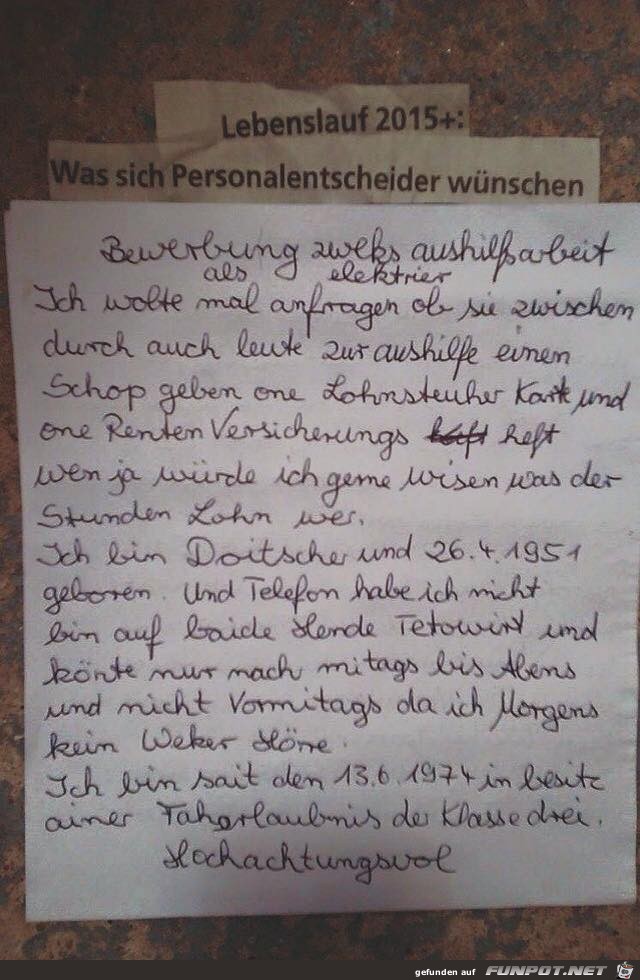 Lebenslauf 2015+:
Was sich Personalentscheider wünschen
Bewerbung zweks aushilfsarbeit
als elektrier
Ich wolte mal anfragen ob sie zwischen
durch auch leute zur aushilfe einen
Schop geben one Lohnsteuher Karte und
one Renten Versicherungs heft
wen ja würde ich gerne wisen was der
Stunden Lohn wer.
Ich bin Doitscher und 26.4.1951
geboren. Und Telefon habe ich nicht
bin auf baide Hende Tetowirt und
könte nur nach mitags bis Abens
und nicht Vormitags da ich Morgens
kein Weker Hörre.
Ich bin sait den 13.6.1974 in besitz
ainer Faherlaubnis der Klasse drei.
Hochachtungsvol
gefunden auf FUNPOT.NET